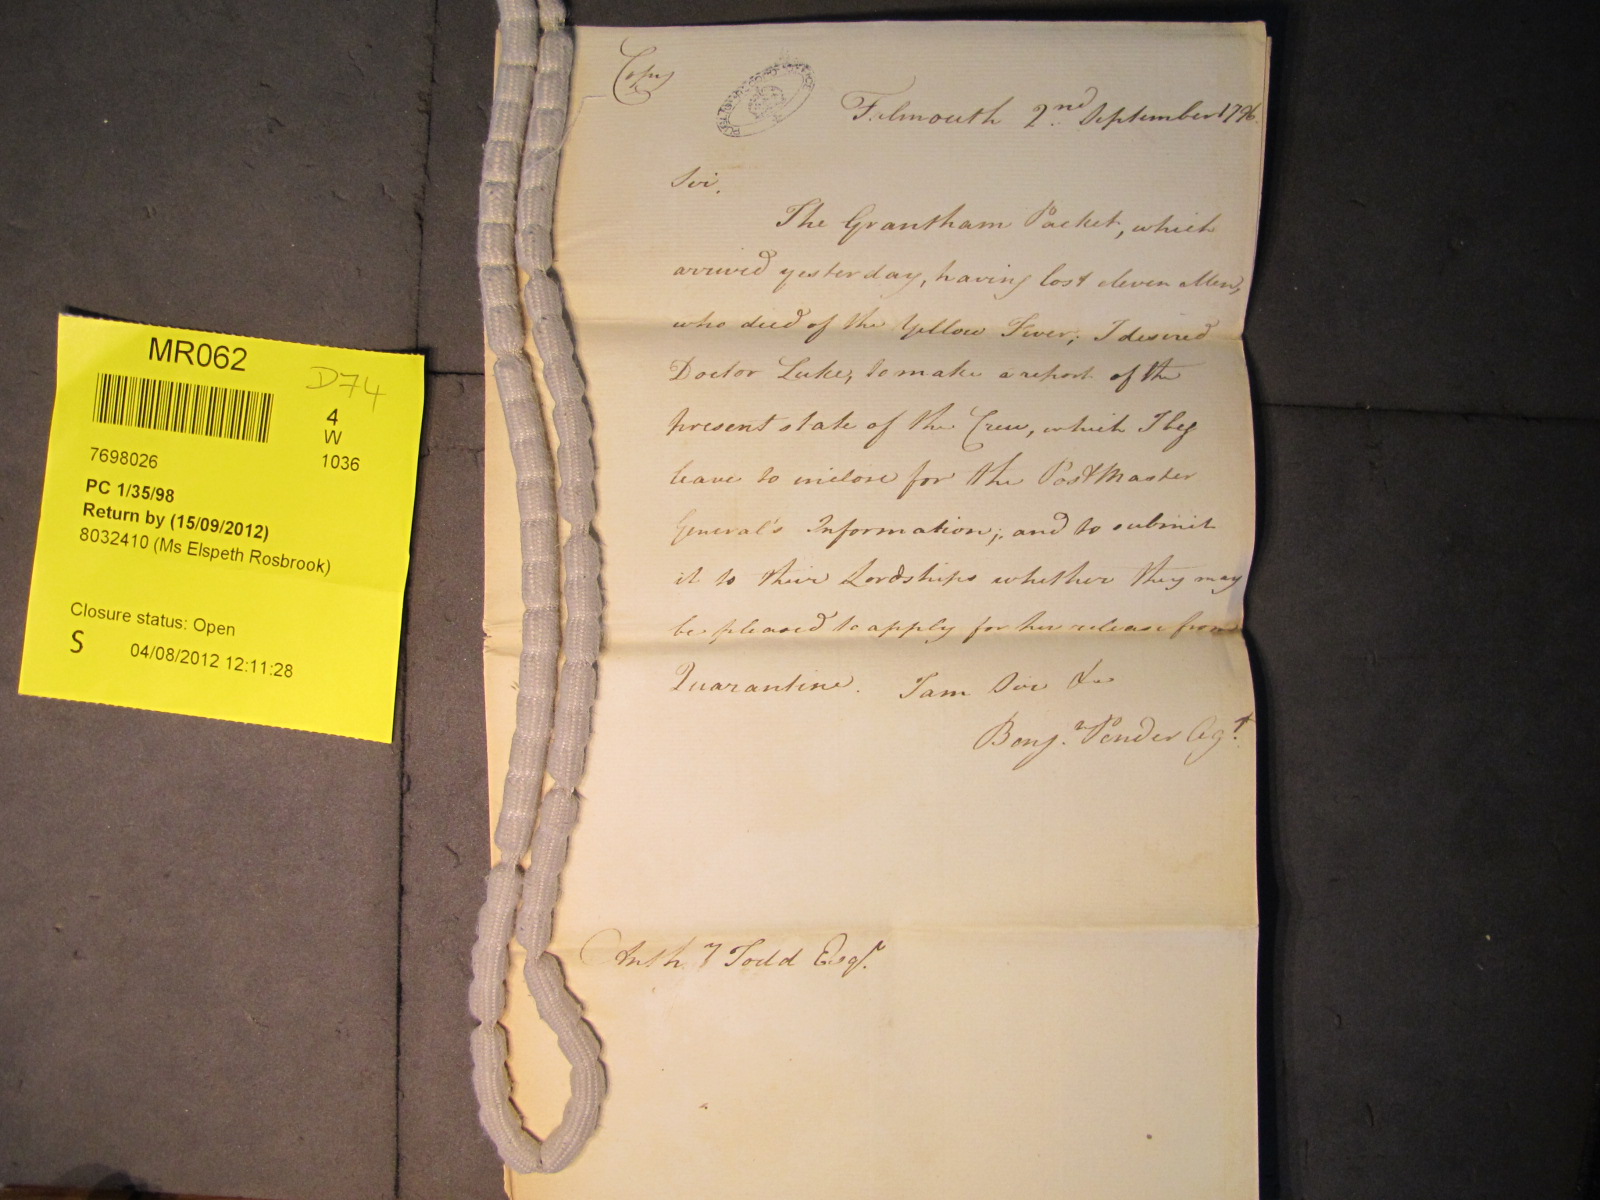 MR062
D74
4
W
1036
7698026
PC 1/35/98
Return by (15/09/2012)
8032410 (Ms Elspeth Rosbrook)
Closure status: Open
S
04/08/2012 12:11:28
Copy
Falmouth 2nd September 1796.
Sir,
The Grantham Packet, which
arrived yesterday, having lost eleven Men,
who died of the Yellow Fever; I desired
Doctor Luke, to make a report of the
present state of the Crew, which I beg
leave to inclose for the PostMaster
General's Information; and to submit
it to their Lordships whether they may
be pleased to apply for her release from
Quarantine. I am Sir &c
Benjn. Pender Agt.
Anthy Todd Esqr.